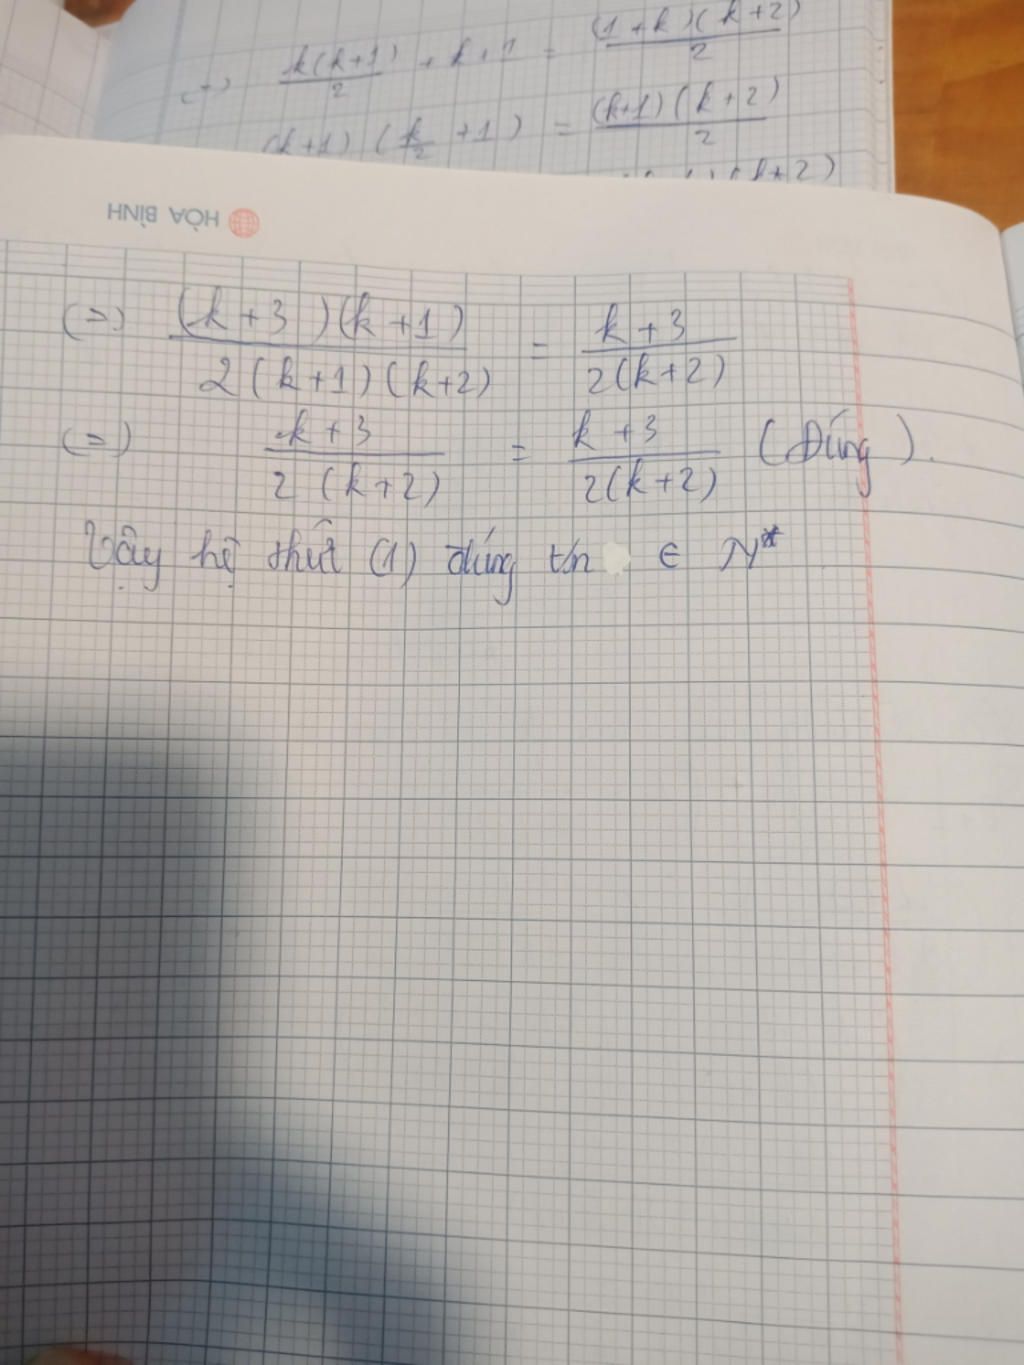 (=) k(k+1)/2 + k+1 = (1+k)(k+2)/2
(k+1) (k/2 +1) = (k+1)(k+2)/2
(k+2)
HÒA BÌNH
(=) (k+3)(k+1)/2(k+1)(k+2) = k+3/2(k+2)
(=) k+3/2(k+2) = k+3/2(k+2) (Đúng).
Vậy hệ thức (1) đúng t/n ∈ N*